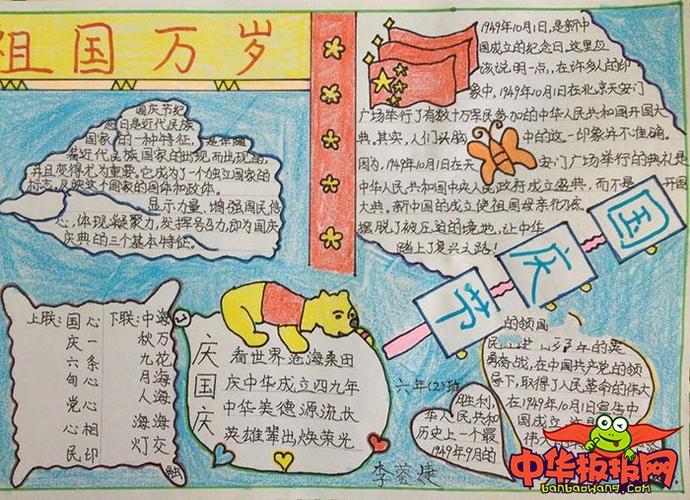 祖国万岁
国庆节纪
念日是近代民族
国家的一种特征,是伴随
着近代民族国家的出现而出现的,
并且变得尤为重要。它成为了一个独立国家的
标志,反映这个国家的国体和政体。
显示力量、增强国民信
心,体现凝聚力,发挥号召力,即为国庆
庆典的三个基本特征。
1949年10月1日,是新中
国成立的纪念日。这里应
该说明一点,在许多人的印
象中,1949年10月1日在北京天安门
广场举行了有数十万军民参加的中华人民共和国开国大
典。其实,人们头脑中的这一印象并不准确。
因为,1949年10月1日在天安门广场举行的典礼是
中华人民共和国中央人民政府成立盛典,而不是开国
大典。新中国的成立使祖国母亲彻底
摆脱了被压迫的境地,让中华
踏上了复兴之路!
国庆节
上联:国庆六旬党心民心一条心心相印
下联:中秋九月海海灯海万花海人海交融
庆国庆
看世界沧海桑田
庆中华成立四九年
中华美德源流长
英雄辈出焕荣光
六年(2)班
李
胜利,
华人民共和
历史上一个最
1949年9月的
的领国
年的英
勇奋战,在中国共产党的领
导下,取得了人民革命的伟大
在1949年10月1日宣告中
国成立
伟大
中华板报网
banbaowang.com